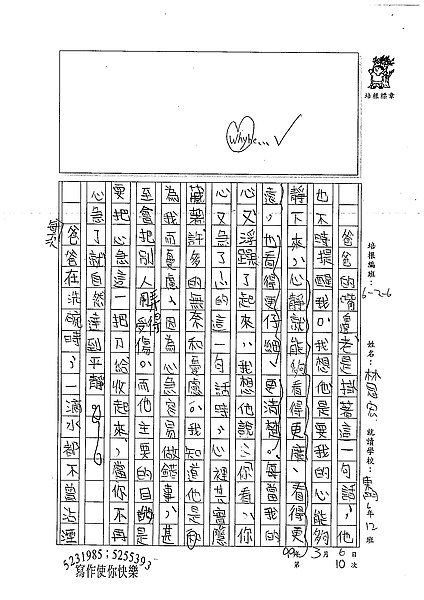 培根標章
培根編班：6-2-6
姓名：林冠宏
就讀學校：東門 6年12班
99年3月6日
第10次
Why be...
爸爸的嘴邊老是掛著這一句話，他
也不清提醒我。我想他是要我的心能夠
靜下來，心靜就能夠看得更廣、看得更
遠，也看得更仔細、更清楚。每當我的
心又浮躁了起來，我想他說：你看，你
心又急了！的這一句話時，心裡其實隱
藏著許多的無奈和憂慮。我知道他是
為我而憂慮，因為心急容易做錯事，甚
至會把別人 得受傷。而他主要的目的是
要把心急這一把刀給收起來，當你不再
心急了就自然達到平靜
每次
爸爸在洗碗時，一滴水都不曾沾溼
5231985；5255393
寫作使你快樂